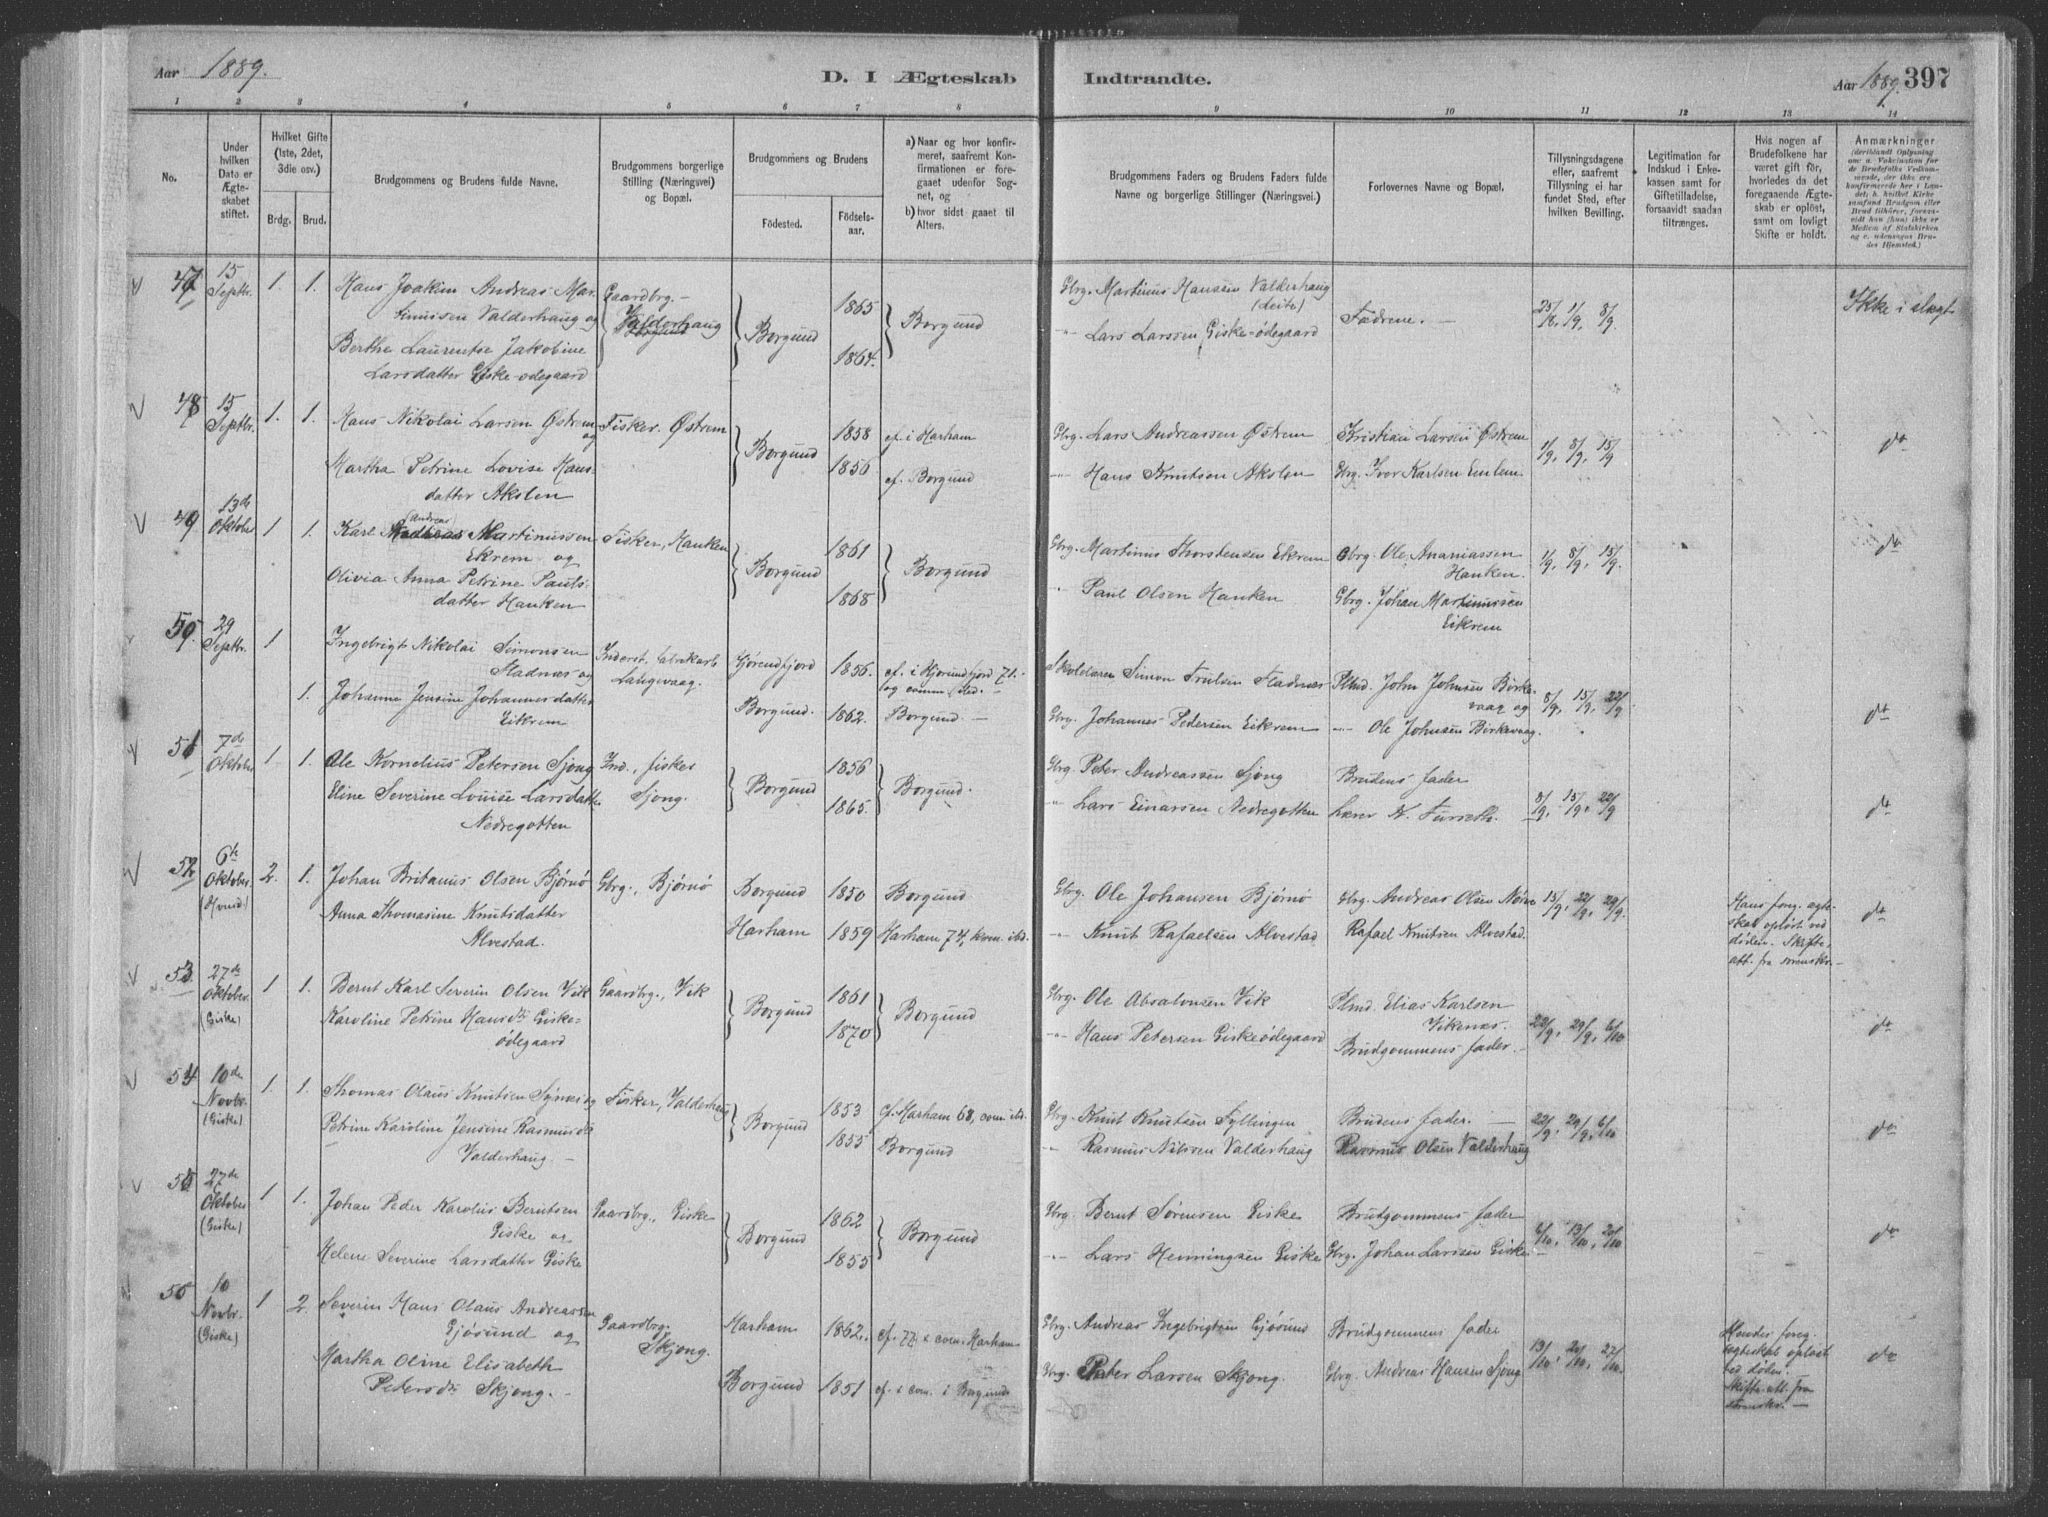 Aar 1889.
D. I Ægteskab
Indtraadte.
Aar 1889.
397
1 2 3 4 5 6 7 8 9 10 11 12 13 14
No.
Under hvilken Dato er Ægteskabet stiftet.
Hvilket Gifte (1ste, 2det, 3die osv.)
Brdg. Brud.
Brudgommens og Brudens fulde Navne.
Brudgommens borgerlige Stilling (Næringsvei) og Bopæl.
Brudgommens og Brudens
Fødested.
Fødselsaar.
a) Naar og hvor konfirmeret, saafremt Konfirmationen er foregaaet udenfor Sognet, og
b) hvor sidst gaaet til Alters.
Brudgommens Faders og Brudens Faders fulde Navne og borgerlige Stillinger (Næringsvei.)
Forlovernes Navne og Bopæl.
Tillysningsdagene eller, saafremt Tillysning ei har fundet Sted, efter hvilken Bevilling.
Legitimation for Indskud i Enkekassen samt for Giftetilladelse, forsaavidt saadan tiltrænges.
Hvis nogen af Brudefolkene har været gift før, hvorledes da det foregaaende Ægteskab er opløst, samt om lovligt Skifte er holdt.
Anmærkninger
47 15 Septbr. 1. 1. Hans Joakim Andreas Martinussen Valderhaug og
Bertha Laurentse Jakobine
Larsdatter Giske-ødegaard
Gaardbrg. —
Valderhaug
Borgund
1865
1864.
Borgund
Gbrg. Martinus Hansen Valderhaug
Lars Larssen Giske-ødegaard
Fædrene. —
25/8, 1/9, 8/9
Ikke i slægt
48 15 Septbr. 1. 1. Hans Nikolai Larsen Østrem og
Martha Petrine Lovise Hansdatter Akslen
Fisker. Østrem
Borgund
1858
1856
cf. i Harham
cf. Borgund
Gbrg. Lars Andreassen Østrem
" Hans Knutsen Akslen
Kristian Larsen Østrem
Gbrg. Iver Karlsen Emlem
1/9, 8/9, 15/9
do
49 13de Oktober 1 1. Karl Andreas Martinussen
Ekrem og
Olivia Anna Petrine Paulsdatter Hanken
Fisker, Hanken
Borgund
1861
1868
Borgund
Gbrg. Martinus Thorstensen Eikrem
" Paul Olsen Hanken
Gbrg. Ole Ananiassen
Hanken.
Gbrg. Johan Martinussen
Eikrem
1/9, 8/9, 15/9.
do
50. 29 Septbr. 1 1. Ingebrigt Nikolai Simonsen
Stadnæs og
Johanne Jensine Johannesdatter
Eikrem
Inderst, fabrikarb.
Langevaag.
Hjørendfjord
Borgund.
1856.
1862.
cf. i Hjørundfjord 71.
og comm. sted. —
Borgund. —
Skolelærer Simon Trulsen Stadnæs
Gbrg. Johannes Pedersen Eikrem
Plmd. John Johnsen Birkevaag og
" Ole Johnsen Birkevaag.
8/9, 15/9, 22/9
do
51 7de Oktober 1. 1. Ole Kornelius Petersen Sjong
Eline Severine Louise Larsdatter
Nedregotten
Ind., fisker
Sjong.
Borgund
1856
1865.
Borgund.
Gbrg. Peter Andreassen Sjong
" Lars Einarsen Nedregotten
Brudens fader
Lærer K. Furseth.
8/9, 15/9, 22/9
do
52 6te Oktober. 2. 1. Johan Britanus Olsen Bjørnø
Anna Thomasine Knutsdatter
Alvestad.
Gbrg., Bjørnø
Borgund
Harham
1850
1859
Borgund
Harham 74, kom. ibd.
Gbrg. Ole Johansen Bjørnø
" Knut Rafaelsen Alvestad
Gbrg. Andreas Olsen Nørve
Rafael Knutsen Alvestad.
15/9, 22/9, 29/9.
Hans foreg. ægteskab opløst ved døden. Skifteatt. fra sorenskr. —
do
53. 27de Oktober. (Giske) 1 1. Bernt Karl Severin Olsen Vik
Karoline Petrine Hansdtr Giske-
ødegaard
Gaardbrg., Vik
Borgund
1861
1870
Borgund
Gbrg. Ole Absalonsen Vik
" Hans Petersen Giskeødegaard
Plmd. Elias Karlsen
Vikenæs.
Brudgommens fader. —
22/9, 29/9, 6/10
do
54 10de Novbr. (Giske) 1. 1. Thomas Olaus Knutsen Synæs og
Petrine Karoline Jensine Rasmusdtr
Valderhaug. —
Fisker, Valderhaug
Borgund
1853
1855
cf. Harham 68, com. ibd.
Borgund
Gbrg. Knut Knutsen Syllingen
" Rasmus Nilssen Valderhaug
Brudens fader. —
Rasmus Olsen Valderhaug
22/9, 29/9, 6/10
do
55 27de Oktober (Giske) 1 1. Johan Peder Karolus Berntsen
Giske og
Helene Severine Larsdatter Giske
Gaardbrg., Giske
Borgund
1862
1855
Borgund
Gbrg. Bernt Sørensen Giske
" Lars Henningsen Giske
Brudgommens fader
Gbrg. Johan Larssen Giske. —
6/10, 13/10, 20/10
do
56 10 Novbr. (Giske) 1 2. Severin Hans Olaus Andreassen
Gjøsund og
Martha Oline Elisabeth
Petersdtr Skjong. —
Gaardbrg.
Skjong.
Harham
Borgund
1862.
1851
cf. 77 & com. Harham
cf. & com. i Borgund
Gbrg. Andreas Ingebrigtsen Gjøsund
Gbrg. Peter Larsen Skjong.
Brudgommens fader
Gbrg. Andreas Hansen Sjong
13/10, 20/10, 27/10.
Hendes foreg. ægteskab opløst ved døden. Skifte-att. fra sorenskr. —
do